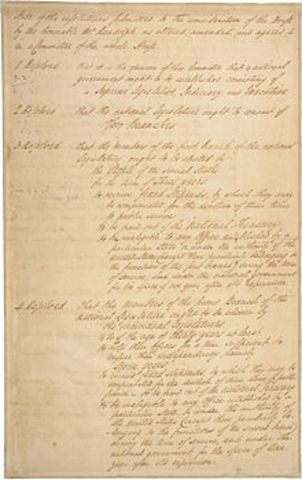 State of the resolutions submitted to the consideration of the House
by the honorable Mr. Randolph, as altered, amended, and agreed to
in a Committee of the whole House.
1. Resolved that it is the opinion of this Committee that a national
government ought to be established consisting of
a Supreme Legislative, Judiciary, and Executive.
2. Resolved that the national Legislature ought to consist of
Two Branches
3. Resolved that the members of the first branch of the national
Legislature ought to be elected by
the People of the several States
for the term of Three years
to receive fixed stipends, by which they may
be compensated for the devotion of their time
to public service
to be paid out of the National Treasury
to be ineligible to any Office established by a
particular State or under the authority of the
United States (except those peculiarly belonging to
the functions of the first branch) during the term
of service, and under the national government
for the space of one year after its expiration.
4. Resolved that the Members of the second Branch of the
national Legislature ought to be chosen by
the individual Legislatures
to be of the age of thirty years at least
to hold their offices for a term sufficient to
ensure their independency, namely
seven years
to receive fixed stipends, by which they may be
compensated for the devotion of their time to public
service – to be paid out of the National Treasury
to be ineligible to any office established by a
particular State, or under the authority of
the United States (except those peculiarly be-
longing to the functions of the second branch)
during the term of service, and under the
national government for the space of one
year after its expiration.